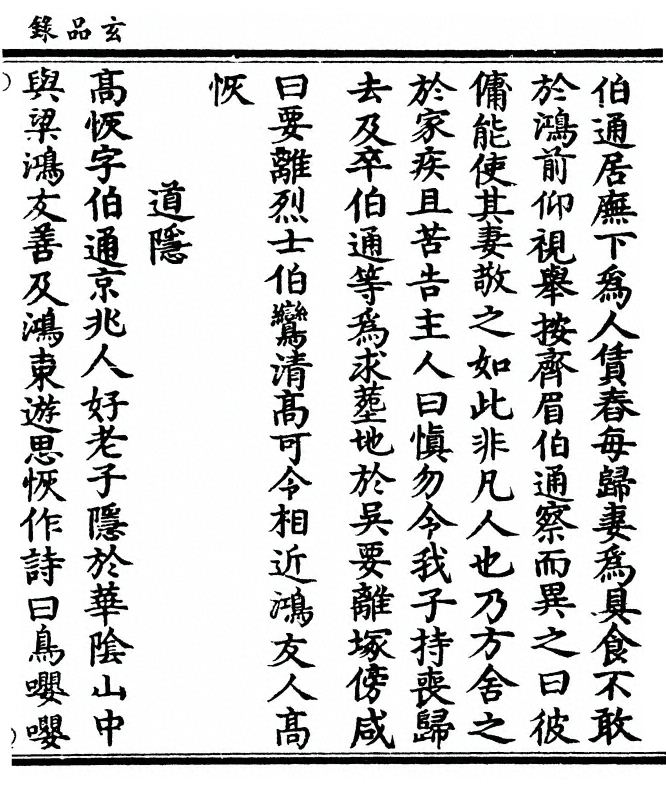 玄品錄
伯通居廡下為人賃舂每歸妻為具食不敢
於鴻前仰視舉按齊眉伯通察而異之曰彼
傭能使其妻敬之如此非凡人也乃方舍之
於家疾且苦告主人曰慎勿令我子持喪歸
去及卒伯通等為求塟地於吳要離塚傍咸
曰要離烈士伯鸞清高可令相近鴻友人高
恢
道隱
高恢字伯通京兆人好老子隱於華陰山中
與梁鴻友善及鴻東遊思恢作詩曰鳥嚶嚶